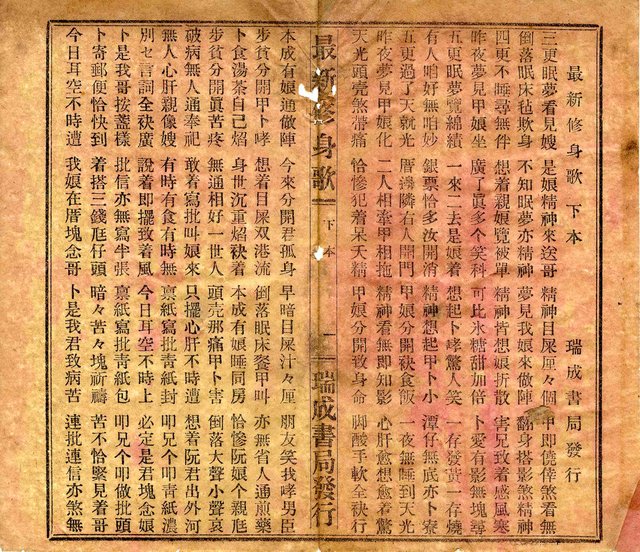 最新修身歌下本　瑞成書局發行
三更眠夢看見嫂　是娘精神來送哥　精神目屎厘々個　甲即僥倖煞看無
倒落眠床毡欺身　不知眠夢亦精神　夢見我娘來做陣　翻身搭影煞精神
四更不睡尋無件　想着親娘覽被單　精神皆想娘折散　害兄致着感風寒
昨夜夢見甲娘坐　廣了眞多个笑科　可比氷糖甜加倍　卜愛有影無塊尋
五更眠夢覽綿績　一來二去是娘着　想起卜哮驚人笑　一存發黃一存燒
有人咱好無咱妙　銀票恰多汝開消　精神想起甲卜小　潭仔無底亦卜寮
五更過了天就光　厝邊隣有人開門　甲娘分開袂食飯　一夜無睡到天光
昨夜夢見甲娘化　二人相牽甲相拖　精神看無即知影　心肝愈想愈着驚
天光頭壳煞帶痛　恰慘犯着呆夭精　甲娘分開致身命　脚酸手軟全袂行
最新修身歌　下本　一　瑞成書局發行
本成有娘通做陣　今來分開君孤身　早暗目屎汁々厘　朋友笑我哮男臣
步貧分開甲卜哮　想着目屎双港流　倒落眠床餐甲叫　亦無省人通煎藥
卜食湯茶自己焰　身世沉重焰袂着　本成有娘睡同房　恰慘阮娘个親尫
步貧分開眞苦疼　無通相好一世人　頭壳那痛甲卜害　倒落大聲小聲哀
破病無人通奉祀　敢着寫批叫娘來　只擺心肝不時遭　想着阮君出外河
無人心肝親像嫂　有時有食有時無　禀紙寫批青紙封　叩兄个叩青紙濃
別乜言詞全袂廣　說着即擺致着風　今日耳空不時上　必定是君塊念娘
卜是我哥按盞樣　批信亦無寫半張　禀紙寫批青紙包　叩兄个叩做批頭
卜寄郵便恰快到　着搭三錢尫仔頭　暗々苦々塊祈禱　苦不恰緊見着哥
今日耳空不時遭　我娘在厝塊念哥　卜是我君致病苦　連批連信亦煞無